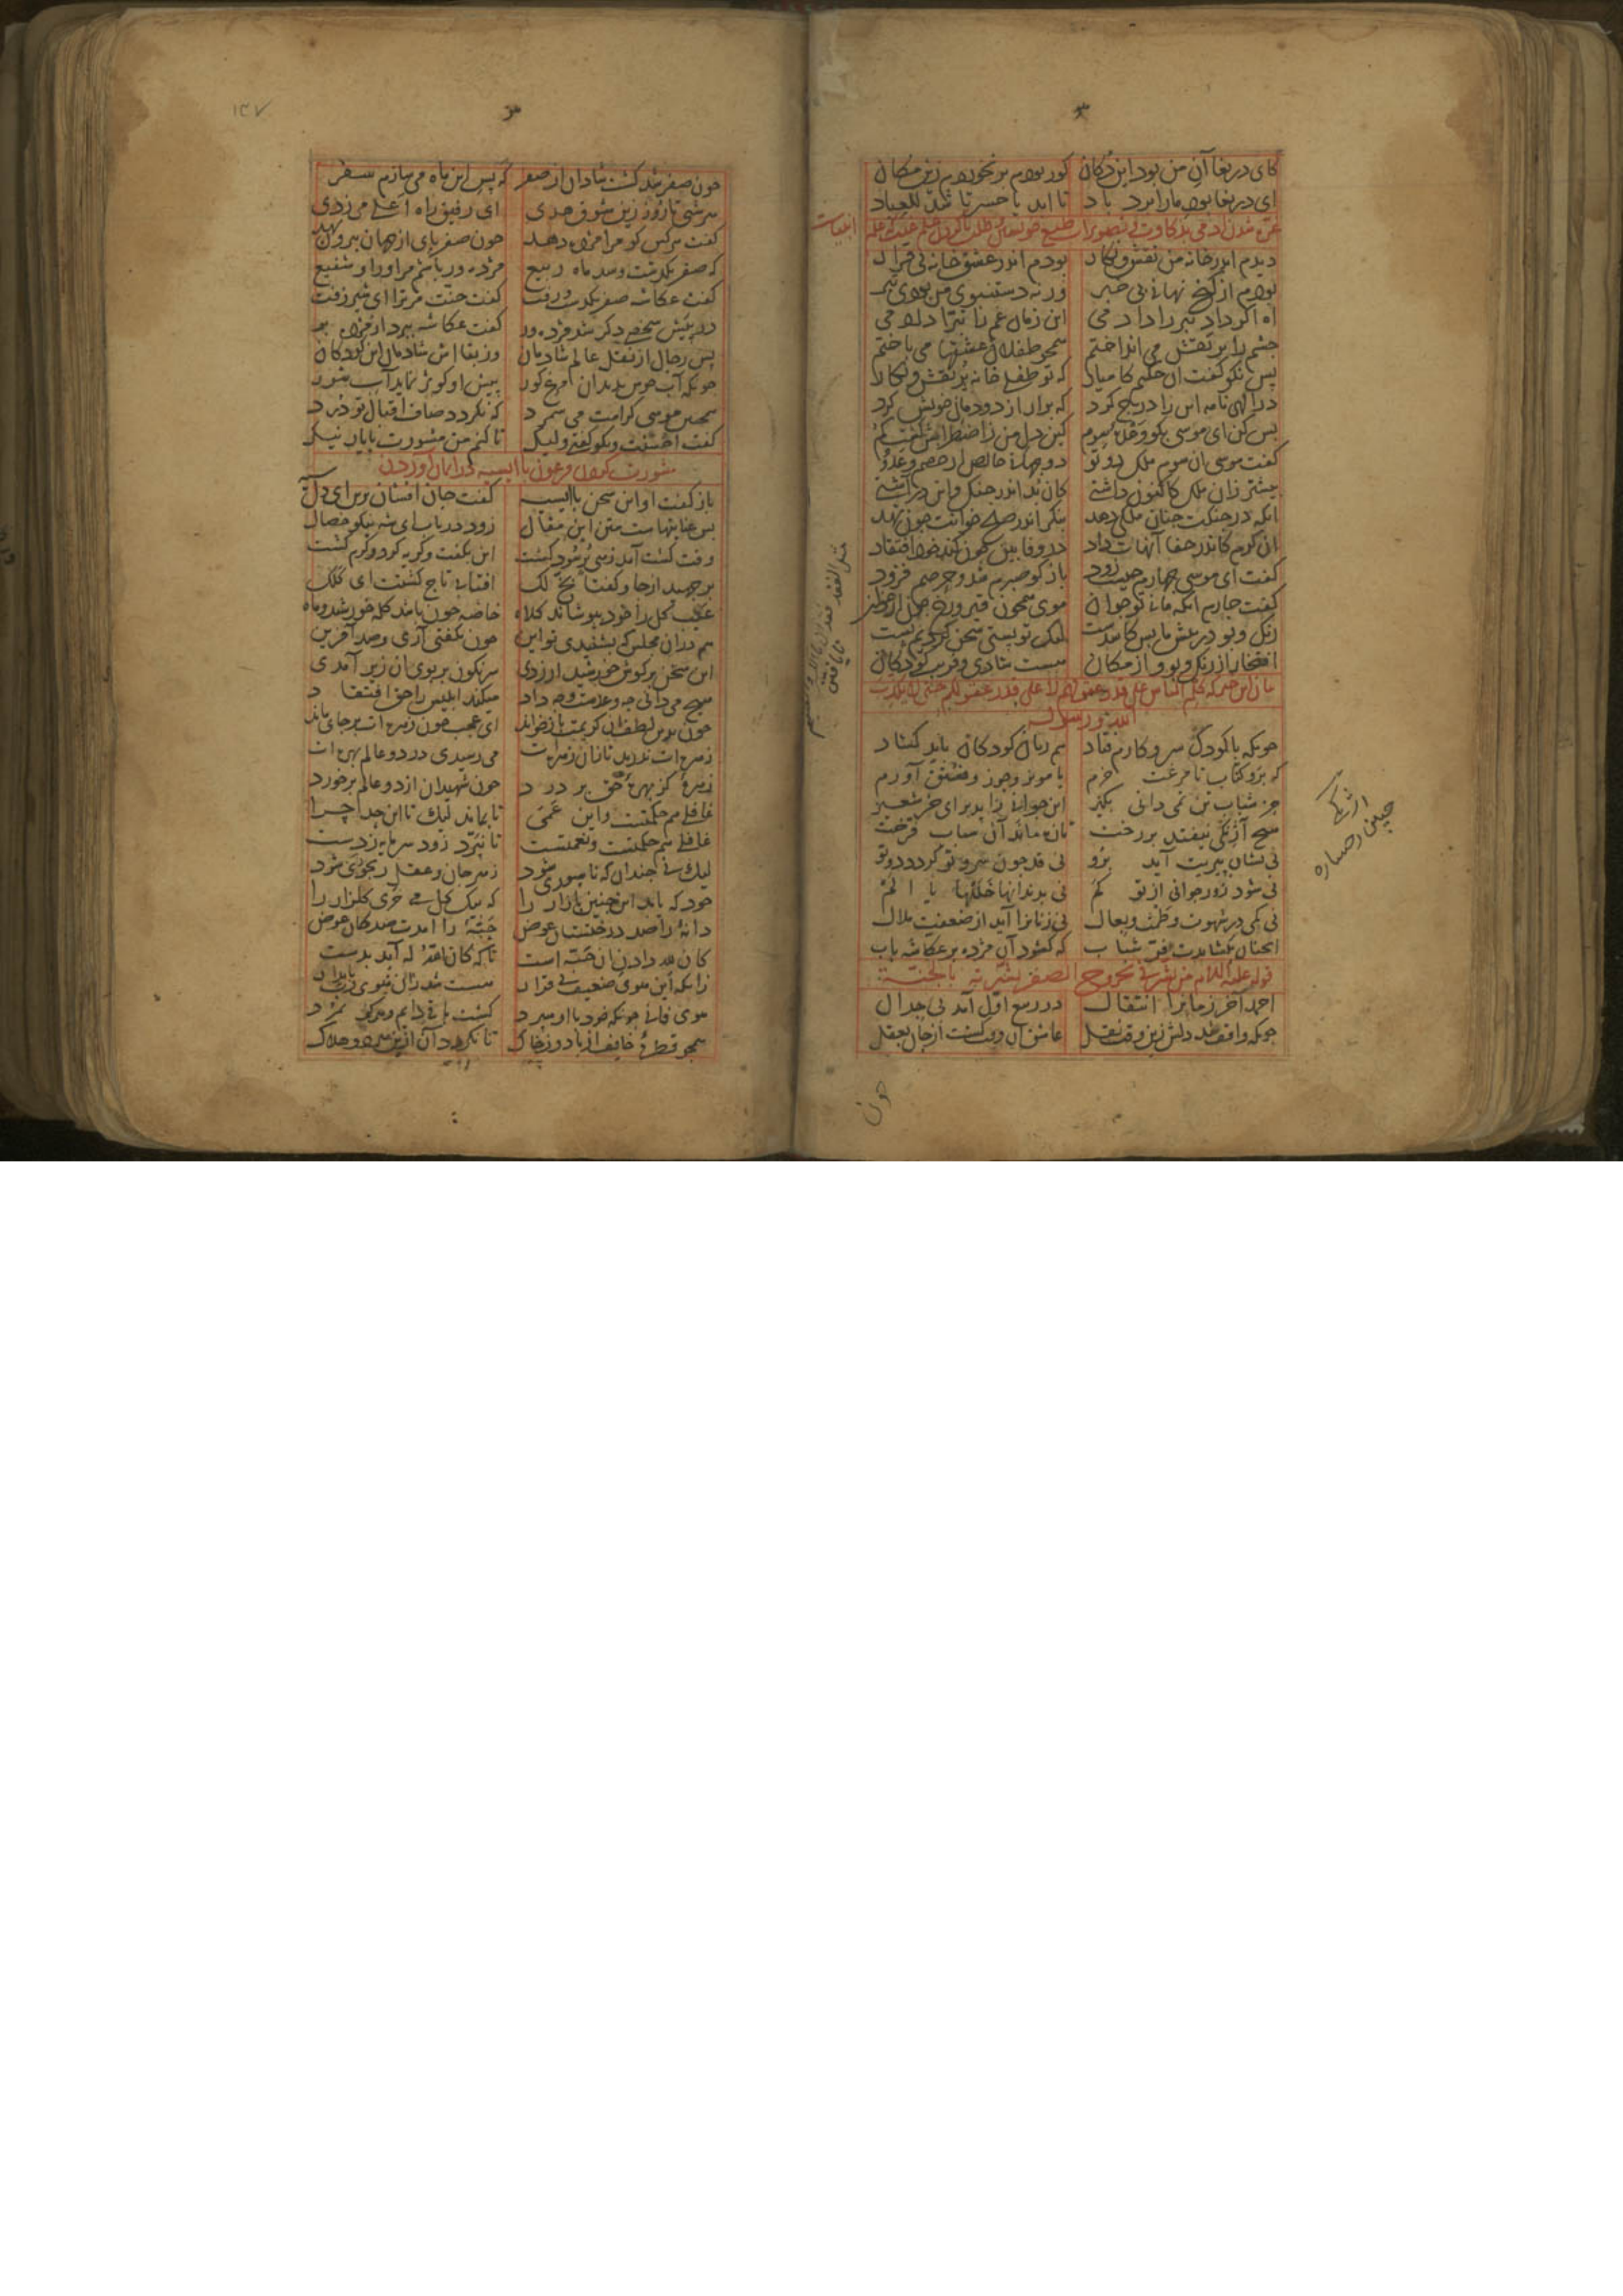 کای دریغا آن من بود این دکان کور بودم بر نخوردم زین مکان
ای دریغا بود ما را برد باد تا ابد یا حسرتا شد للعباد
غره شدن آدمی بذکاوت و تصویرات طبع خویشتن و طلب ناکردن علم غیب که علم انبیاست
دیدم اندر خانه من نقش و نکار بودم اندر عشق خانه بی قرار
بودم از کنج نهانی بی خبر ورنه دستنبوی من بودی تبر
آه اکر داد تبر را دادمی این زمان غم را تبرا دادمی
چشم را بر نقش می انداختم همچو طفلان عشقها می باختم
پس نکو کفت آن حکیم کامیار که تو طفلی خانه پر نقش و نکار
در الهی نامه این اندرج کرد که برار از دودمان خویش کرد
بس کن ای موسی بکو وعده سوم که دل من ز اضطرابش کشت کم
کفت موسی آن سوم ملک دوتو دو جهانی خالص از خصم و عدو
بیشتر زان ملک کاکنون داشتی کان بد اندر جنک و این در آشتی
آنکه در جنکت چنان ملکی دهد بنکر اندر صلح خوانت چون نهد
آن کرم کاندر جفا آنهات داد در وفا بین چون کند خود افتقاد
کفت ای موسی چهارم چیست زود باز کو صبرم شد و حرصم فزود
کفت چارم آنکه مانی تو جوان موی همچون قیر و رخ چون ارغوان
رنک و بو در پیش ما بس کاسدست لیک تو پستی سخن کردیم پست
افتخار از رنک و بو و از مکان هست شادی و فریب کودکان
بیان این خبر که کلم الناس علی قدر عقولهم لا علی قدر عقولکم حتی لا یکذب
الله و رسوله
چونکه با کودک سر و کارم فتاد هم زبان کودکان باید کشاد
که برو کتاب تا مرغت خرم یا مویز و جوز و فستق آورم
جز شباب تن نمی دانی بکیر این جوانی را بدیر ای خر شعیر
هیچ آژنکی نیفتد بر رخت تازه ماند آن شباب فرخت
نی نشان پیریت آید برو نی قد چون سرو تو کردد دوتو
نی شود زور جوانی از تو کم نی بدندانها خللها یا الم
نی کمی در شهوت و طمث و بعال نی زنانرا آید از ضعفت ملال
آنچنان بکشایدت فر شباب که کشود آن مژده بر عکاشه باب
قوله علیه السلام من بشرنی بخروج الصفر بشرته بالجنة
احمد آخر زمانرا انتقال در ربیع اول آمد بی جدال
چونکه واقف شد دلش زین وقت نقل عاشق آن وقت کشت از جان بعقل
چون
۱۴۷
چون صفر شد کشت شادان از صفر که پس این ماه می سازم سفر
هر شبی تا روز زین شوق هدی ای رفیق راه اعلی می زدی
کفت هر کس کو مرا مژده دهد چون صفر پای از جهان بیرون نهد
که صفر بکذشت و شد ماه ربیع مژده ور باشم مر او را و شفیع
کفت عکاشه صفر بکذشت و رفت کفت جنت مر ترا ای شیر زفت
دیکری آمد که بکذشت آن صفر کفت عکاشه ببرد از مژده بر
پس رجال از نقل عالم شادمان وز بقااش شادمان این کودکان
چونکه آب خوش ندید آن مرغ کور پیش او کوثر نماید آب شور
همچنین موسی کرامت می شمرد که نکردد صاف اقبال تو درد
کفت احسنت و نکو کفتی ولیک تا کنم من مشورت با یار نیک
مشورت کردن فرعون با ایسیه در ایمان آوردن
باز کفت او این سخن با ایسیه کفت جان افشان برین ای دل سیه
بس عنایتهاست متن این مقال زود دریاب ای شه نیکو خصال
وقت کشت آمد زهی پر سود کشت این بکفت و کریه کرد و کرم کشت
بر جهید از جا و کفتا بخ لک آفتابی تاج کشتت ای کلک
عیب کل را خود بپوشاند کلاه خاصه چون باشد کله خورشید و ماه
هم در آن مجلس که بشنیدی تو این چون نکفتی آری و صد آفرین
این سخن در کوش خورشید ار زدی سرنکون بر بوی آن زیر آمدی
هیچ می دانی چه وعده است و چه داد میکند ابلیس را حق افتقاد
چون بدین لطف آن کریمت باز خواند ای عجب چون زهره ات بر جای ماند
زهره ات ندرید تا زان زهره ات می رسیدی در دو عالم بهره ات
زهرهٔ کز بهرهٔ حق بر درد چون شهیدان از دو عالم بر خورد
غافلی هم حکمتست و این عمی تا بماند لیک تا این حد چرا
غافلی هم حکمتست و نعمتست تا نپرد زود سرمایه ز دست
لیک نی چندان که ناسوری شود زهر جان و عقل رنجوری شود
خود که یابد این چنین بازار را که بیک کل می خری کلزار را
دانهٔ را صد درختستان عوض حبهٔ را آمدت صد کان عوض
کان لله دادن آن حبه است تا که کان الله له آید بدست
زانکه این هوی ضعیف بی قرار هست شد زان هوی رب پایدار
هوی فانی چونکه خود با او سپرد کشت باقی دایم و هرکز نمرد
همچو قطرهٔ خایف از باد و ز خاک تا نکردد آن ازین هر دو هلاک